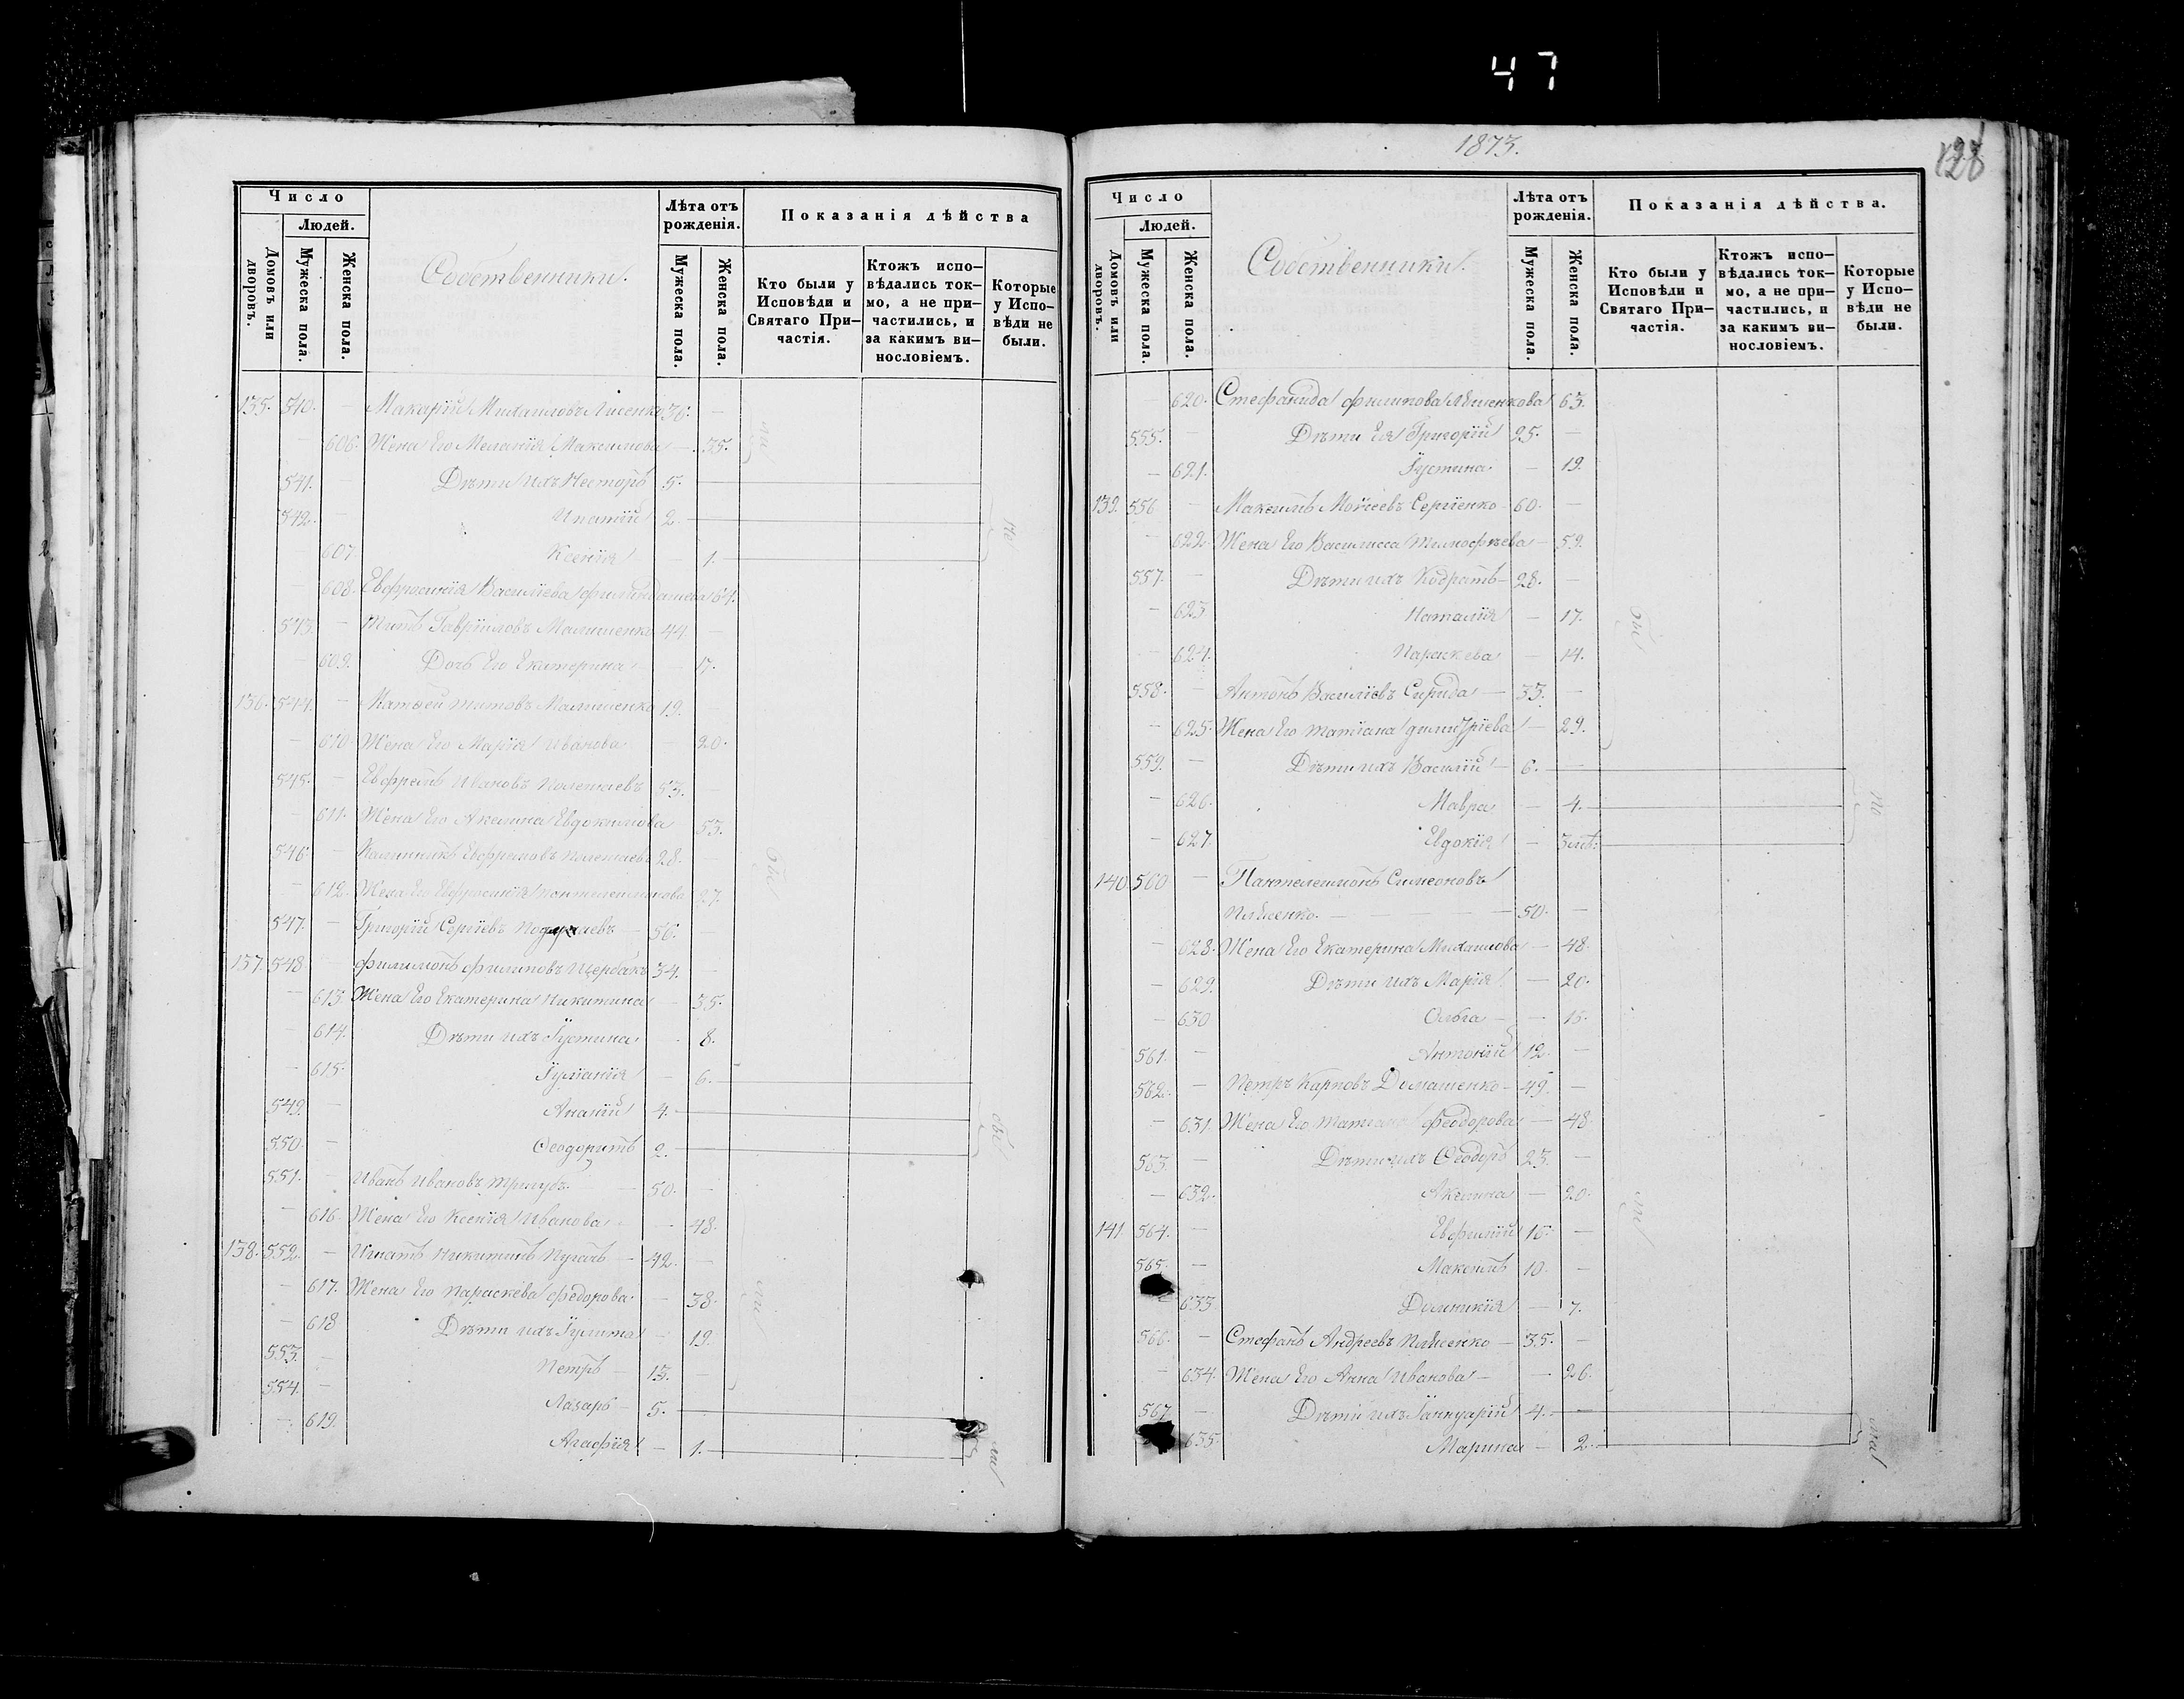 47
Число
Людей.
Домовъ или дворовъ.
Мужеска пола.
Женска пола.
Собственники.
Лѣта отъ рожденія.
Мужеска пола.
Женска пола.
Показанія дѣйства
Кто были у Исповѣди и Святаго При-частія.
Ктожъ испо-вѣдались ток-мо, а не при-частились, и за какимъ ви-нословіемъ.
Которые у Испо-вѣди не были.
135. 540. — Макарій Михаиловъ Лисенко 36. —
— 606. Жена Его Меланія Максимова — 35.
541. — Дѣти ихъ Несторъ 5.
542. — Ипатій 2.
607 Ксенія — 1.
— 608. Евфросинія Василіева 64.
543. — Титъ Гавріиловъ Малишенко 44. —
— 609. Дочь Его Екатерина — 17.
136. 544. — Матѳей Титовъ Малишенко 19. —
— 610. Жена Его Марія Иванова — 20.
545. — Евфремъ Ивановъ 53. —
— 611. Жена Его Акелина Евдокимова 53.
546. — Каллиникъ Евфремовъ 28. —
— 612. Жена Его Евфросинія Пантелеимонова 27.
547. — Григорій Сергіевъ — 56. —
137. 548. Филимонъ Филиповъ Щербакъ 34. —
— 613. Жена Его Екатерина Никитина — 35.
— 614. Дѣти ихъ Іустина — 8.
— 615. Іуліанія — 6.
549. — Ананій 4.
550. — Ѳеодоритъ 2.
551. — Иванъ Ивановъ — 50. —
— 616. Жена Его Ксенія Иванова — 48.
138. 552. — Игнатъ Никитинъ Пугачъ — 42. —
— 617. Жена Его Параскева Федорова — 38.
— 618 Дѣти ихъ Іулита — 19.
553. — Петръ — 13. —
554. — Лазарь — 5.
— 619. Агафія — 1.
1873.
128
Число
Людей.
Домовъ или дворовъ.
Мужеска пола.
Женска пола.
Собственники.
Лѣта отъ рожденія.
Мужеска пола.
Женска пола.
Показанія дѣйства.
Кто были у Исповѣди и Святаго При-частія.
Ктожъ испо-вѣдались ток-мо, а не при-частились, и за какимъ ви-нословіемъ.
Которые у Испо-вѣди не были.
— 620. Стефанида Филипова 63.
555. — Дѣти Ея Григорій 25. —
— 621. Іустина — 19.
139. 556 — Максимъ Моѵсеевъ Сергіенко 60. —
— 622. Жена Его Василисса Тимофѣева — 59.
557. — Дѣти ихъ Кодратъ — 28. —
— 623 Наталія — 17.
— 624. Параскева — 14.
558. — Антонъ Василіевъ Сирида — 33. —
— 625. Жена Его Татіана Димитріева — 29.
559. — Дѣти ихъ Василій — 6. —
— 626. Мавра — 4.
— 627. Евдокія —
140 560 — Пантелеимонъ Симеоновъ
Пляшенко — 50. —
— 628. Жена Его Екатерина Михаилова — 48.
— 629. Дѣти ихъ Марія — 20.
— 630 Ольга — 15.
561. — Антоній 12. —
562. — Петръ Карповъ Домашенко — 49. —
— 631. Жена Его Татіана Феодорова — 48.
563. — Дѣти ихъ Ѳеодоръ 23. —
— 632. Акелина — 20.
141. 564. — Евфимій 15. —
565. — Максимъ 10. —
633. Домникія — 7.
566. — Стефанъ Андреевъ Пляшенко — 35. —
— 634. Жена Его Анна Иванова — 26.
567 — Дѣти ихъ Іаннуарій 4. —
635. Марина — 2.